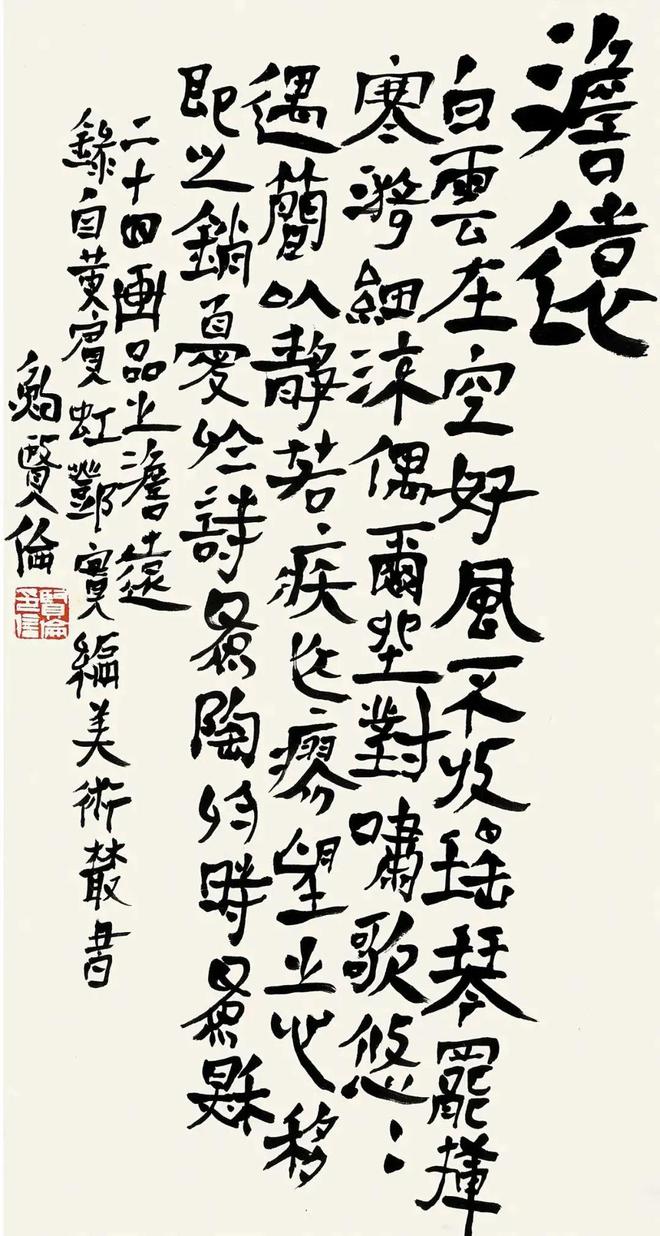 澹遠
白雲在空好風不收瑤琴罷揮
寒漪細流偶爾坐對嘯歌悠〻
遇簡以靜若疾乍瘳望之心移
即之銷憂於詩爲陶於時爲秋
二十四画品之澹遠
錄自黃賓虹鄧實編美術叢書
鮑賢倫